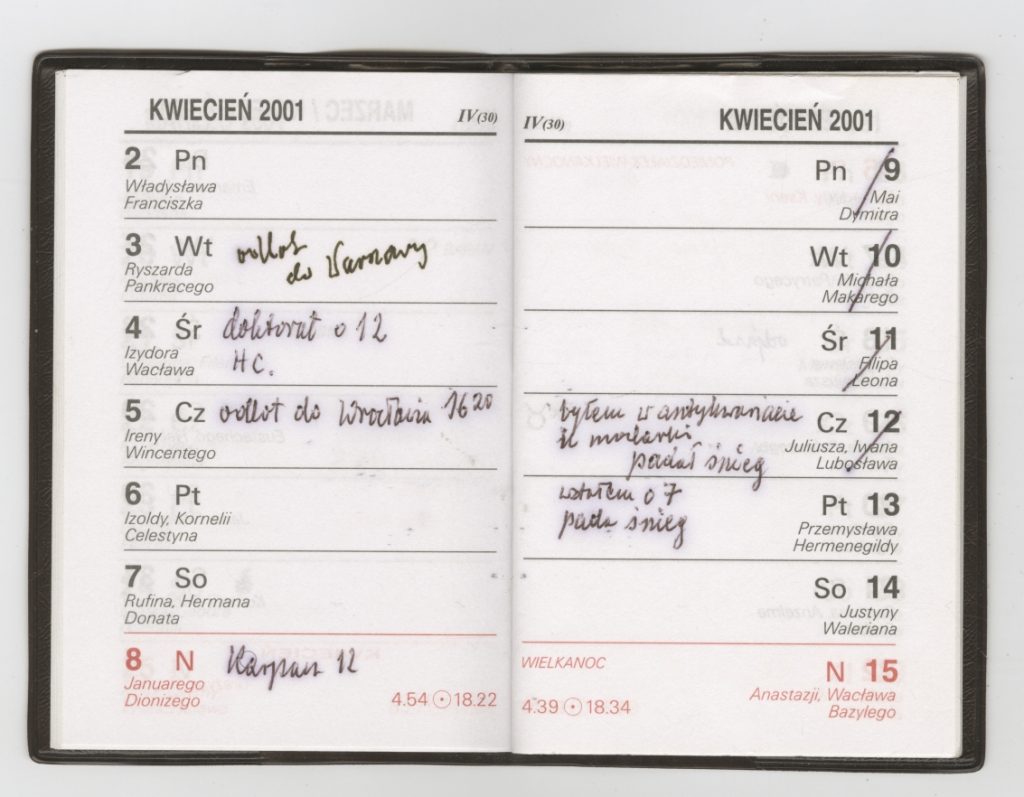 KWIECIEŃ 2001 IV(30)
2 Pn
Władysława
Franciszka
3 Wt odlot
do Warszawy
Ryszarda
Pankracego
4 Śr doktorat o 12
H C.
Izydora
Wacława
5 Cz odlot do Wrocławia 16 20
Ireny
Wincentego
6 Pt
Izoldy, Kornelii
Celestyna
7 So
Rufina, Hermana
Donata
8 N 12
Januarego
Dionizego
4.54 18.22
IV(30) KWIECIEŃ 2001
Pn 9
Mai
Dymitra
Wt 10
Michała
Makarego
Śr 11
Filipa
Leona
byłem w antykwariacie
padał śnieg
Cz 12
Juliusza, Iwana
Lubosława
wstałem o 7
pada śnieg
Pt 13
Przemysława
Hermenegildy
So 14
Justyny
Waleriana
WIELKANOC
N 15
Anastazji, Wacława
Bazylego
4.39 18.34